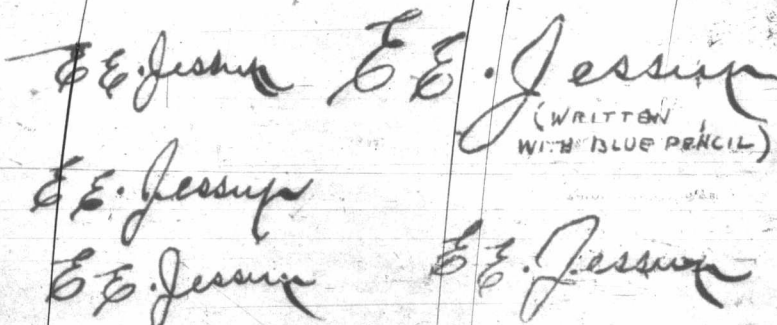 E E. Jessup
E E. Jessup
(WRITTEN
WITH BLUE PENCIL)
E E. Jessup
E E. Jessup
E E. Jessup